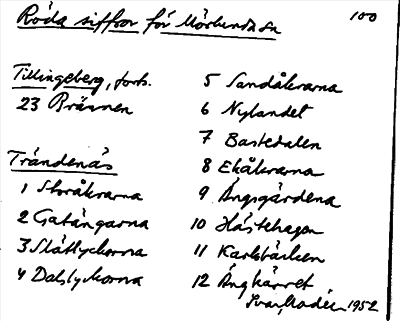 Röda siffror för Mörlunda sn
100
Tillingeberg, forts.
23 Brännen
Trändenäs
1 Storåkrarna
2 Gatängarna
3 Slätlyckorna
4 Dalslyckorna
5 Sandåkrarna
6 Nylandet
7 Bastedalen
8 Ekåkrarna
9 Ängsgärdena
10 Hästehagen
11 Karlsbäcken
12 Ängkärret
1952